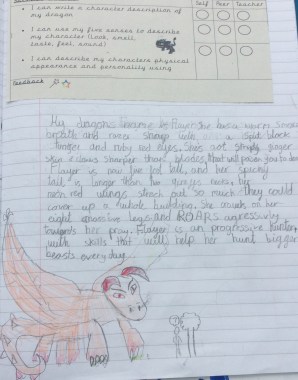 Self Peer Teacher
• I can write a character description of
my dragon
• I can use my five senses to describe
my character (look, smell,
taste, feel, sound)
• I can describe my characters physical
appearance and personality using
Feedback
My dragons name is Flayer. She has a warm
breath and razor sharp a spit black
tounge and ruby red eyes. She's got
skin claws sharper than blades, that will poison you to
Flayer is now five foot tall, and her spikey
tail is longer than
rich red wings stand out so much they could
cover up a whole building. She crawls on her
eight legs and ROARS aggressively
towards her pray. Flayer is an progressive hunter,
with skills that will help her hunt bigger
beasts everyday.